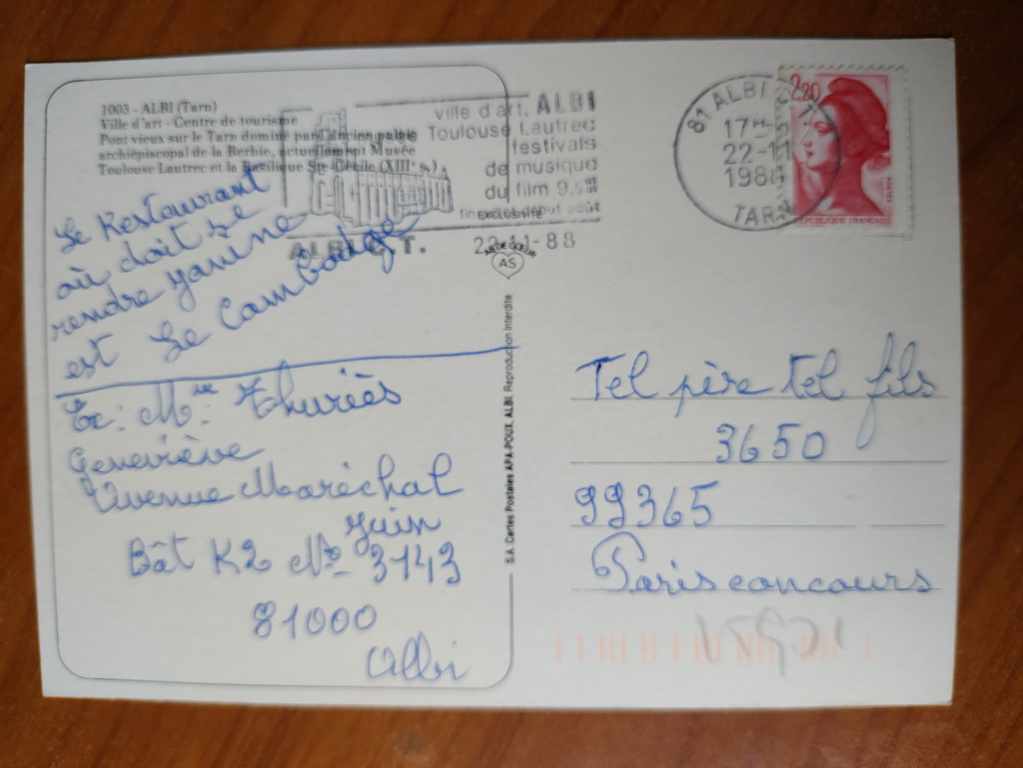 1003 - ALBI (Tarn)
Ville d'art - Centre de tourisme
Pont vieux sur le Tarn dominé par l'ancien palais
archiépiscopal de la Berbie, actuellement Musée
Toulouse Lautrec et la Basilique Ste-Cécile (XIIIe s.)
ville d'art, ALBI
Toulouse Lautrec
festivals
de musique
du film 9,5 mm
fin début août
EXCLUSIVITÉ
ALBI C.T.
22-11-88
81 ALBI C.T.
17H
22-11
1988
TARN
2,20
REPUBLIQUE FRANÇAISE
Le Restaurant
où doit se
rendre Yanine
est Le Cambodge
AS
S.A. Cartes Postales APA-POUX, ALBI. Reproduction Interdite
Ec: Mme Thuriès
Geneviève
Avenue Maréchal
Juin
Bât K2 No 3143
81000
Albi
Tel père tel fils
3650
99365
Paris concours